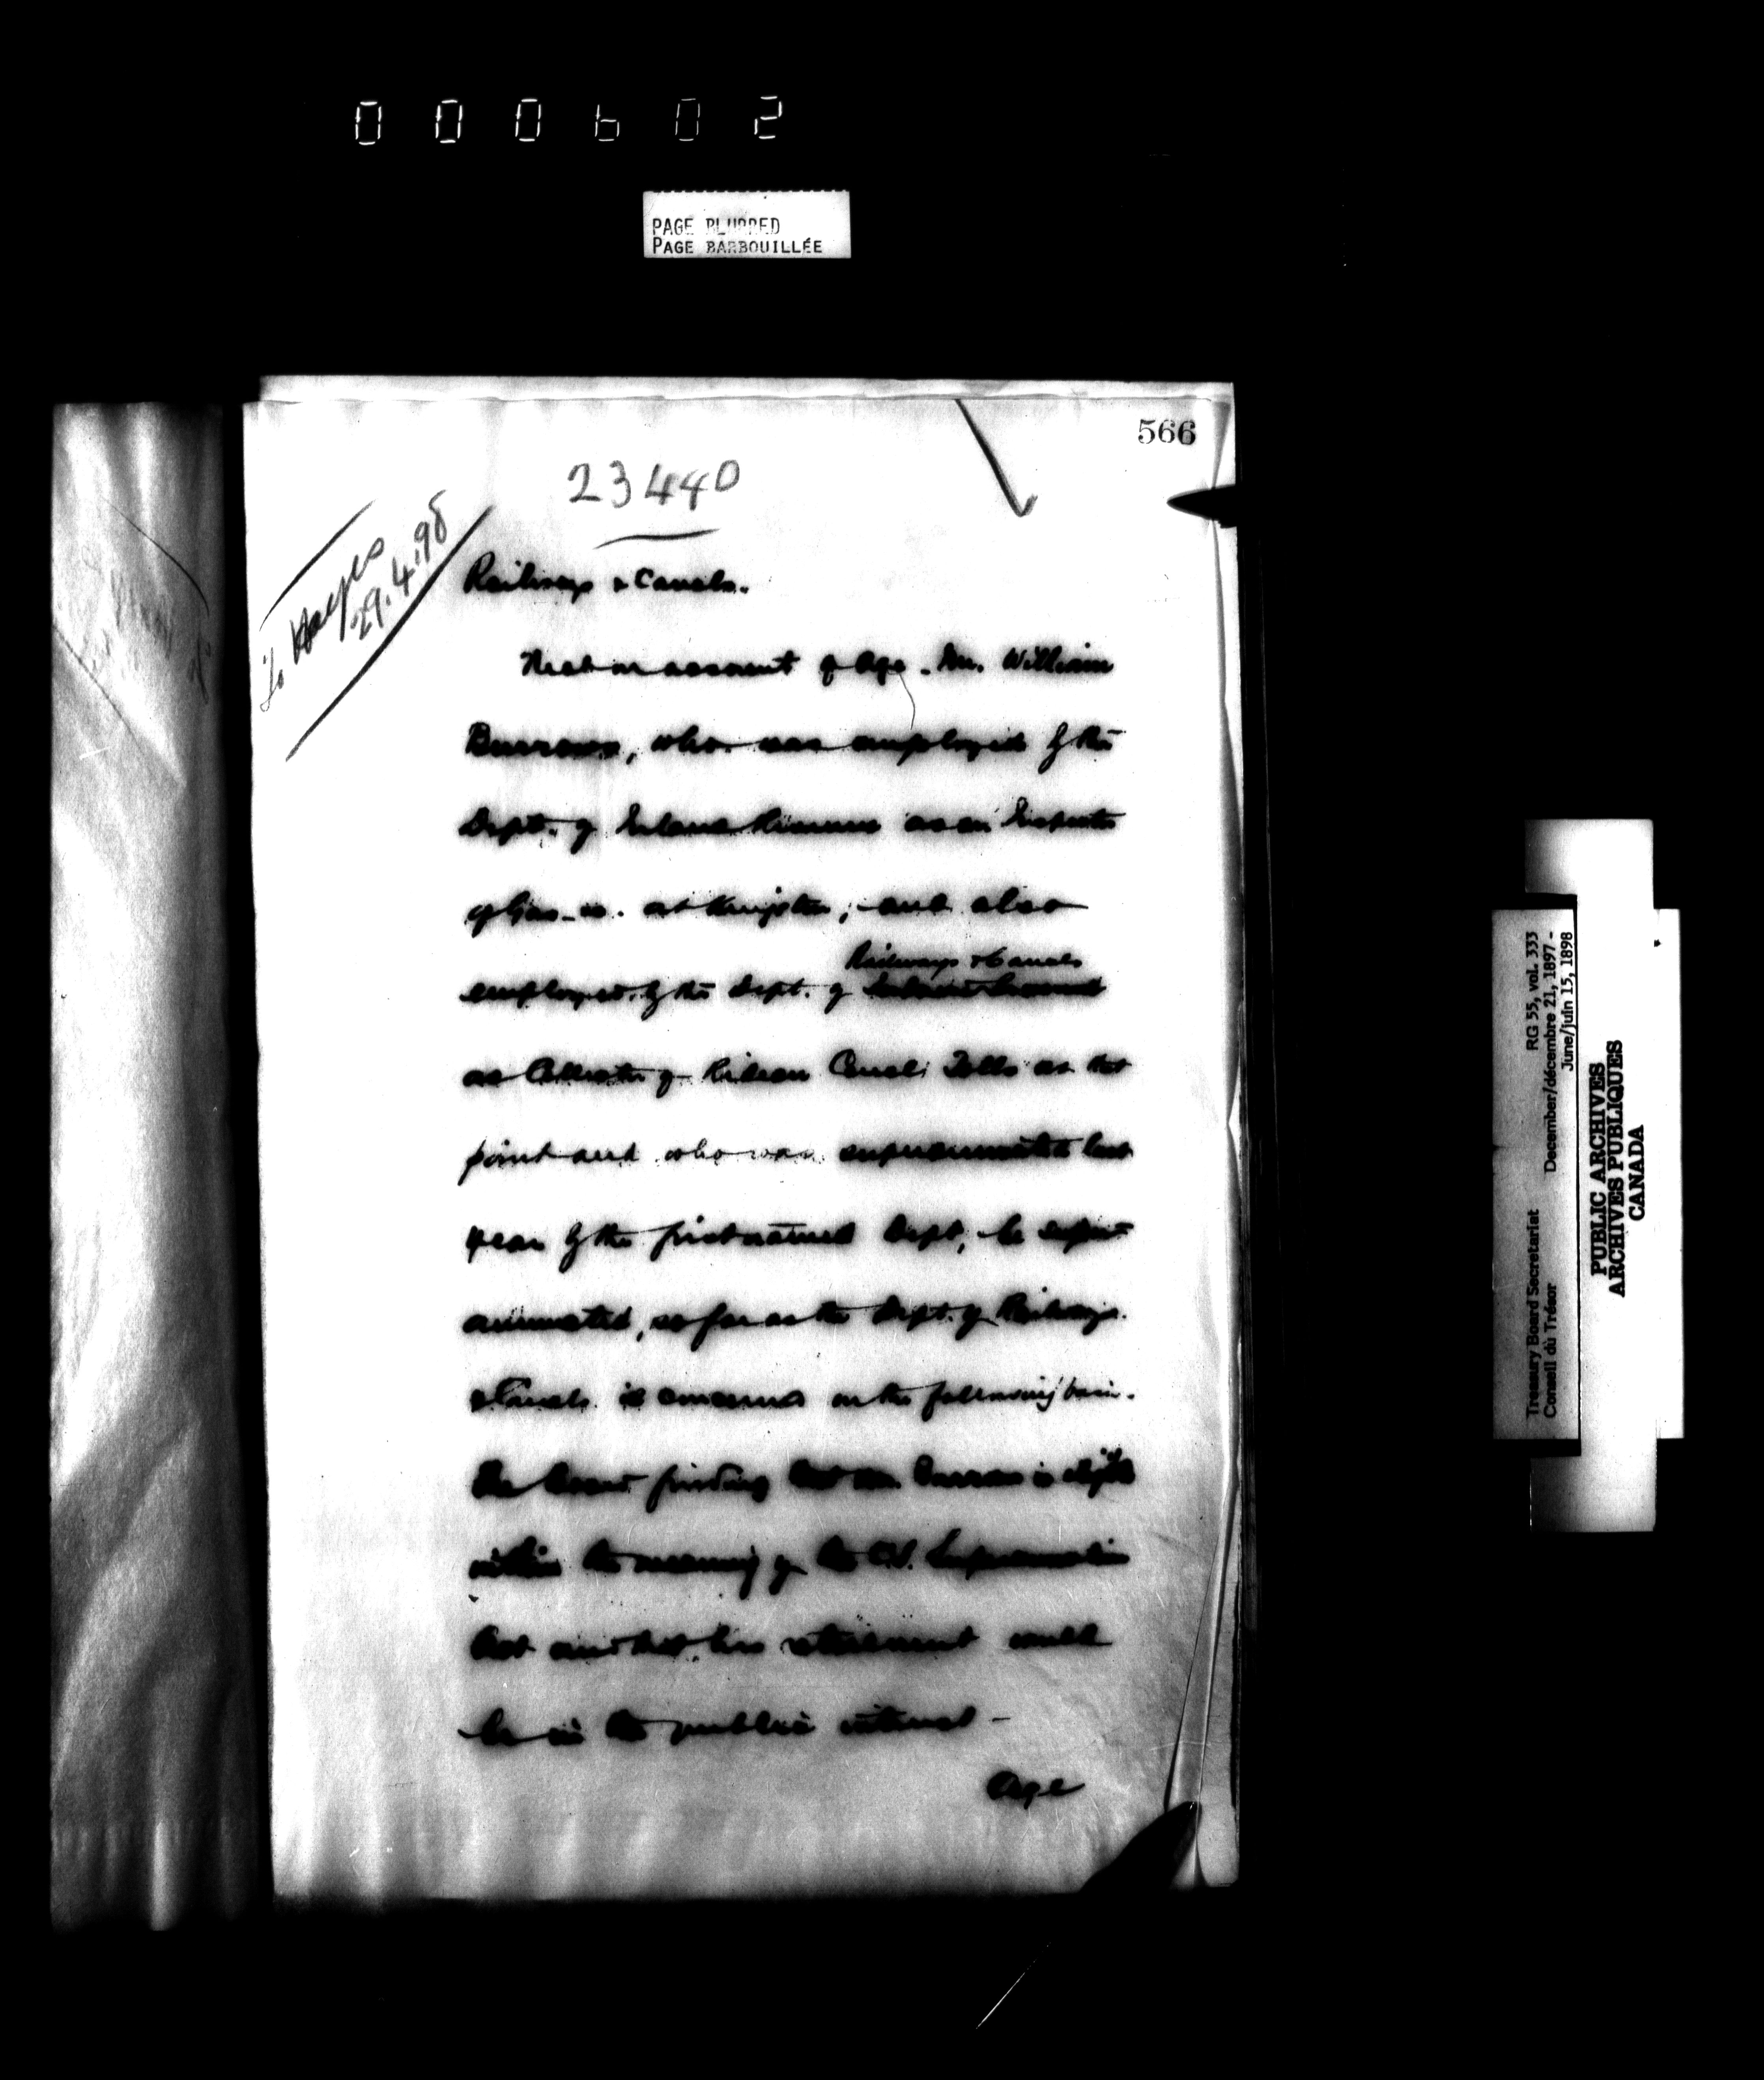 000602
PAGE BLURRED
PAGE BARBOUILLÉE
566
23440
To Hayes
29.4.98
Railways & Canals.
That on account of age, Mr. William
Burrows, who was employed by the
Dept. of Inland Revenue as an Inspector
of Gas at Kingston, and also
Railways & Canals
employed by the Dept. of Inland Revenue
as Collector of Rideau Canal Tolls at that
point and who was superannuated last
year by the first named Dept, be super-
annuated, so far as the Dept. of Railways
& Canals is concerned on the following basis.
The Board finding that Mr. Burrows is eligible
within the meaning of the C.S. Superannuation
Act and that his retirement would
be in the public interest -
Age
Treasury Board Secretariat RG 55, vol. 333
Conseil du Trésor December/décembre 21, 1897 -
June/juin 15, 1898
PUBLIC ARCHIVES
ARCHIVES PUBLIQUES
CANADA